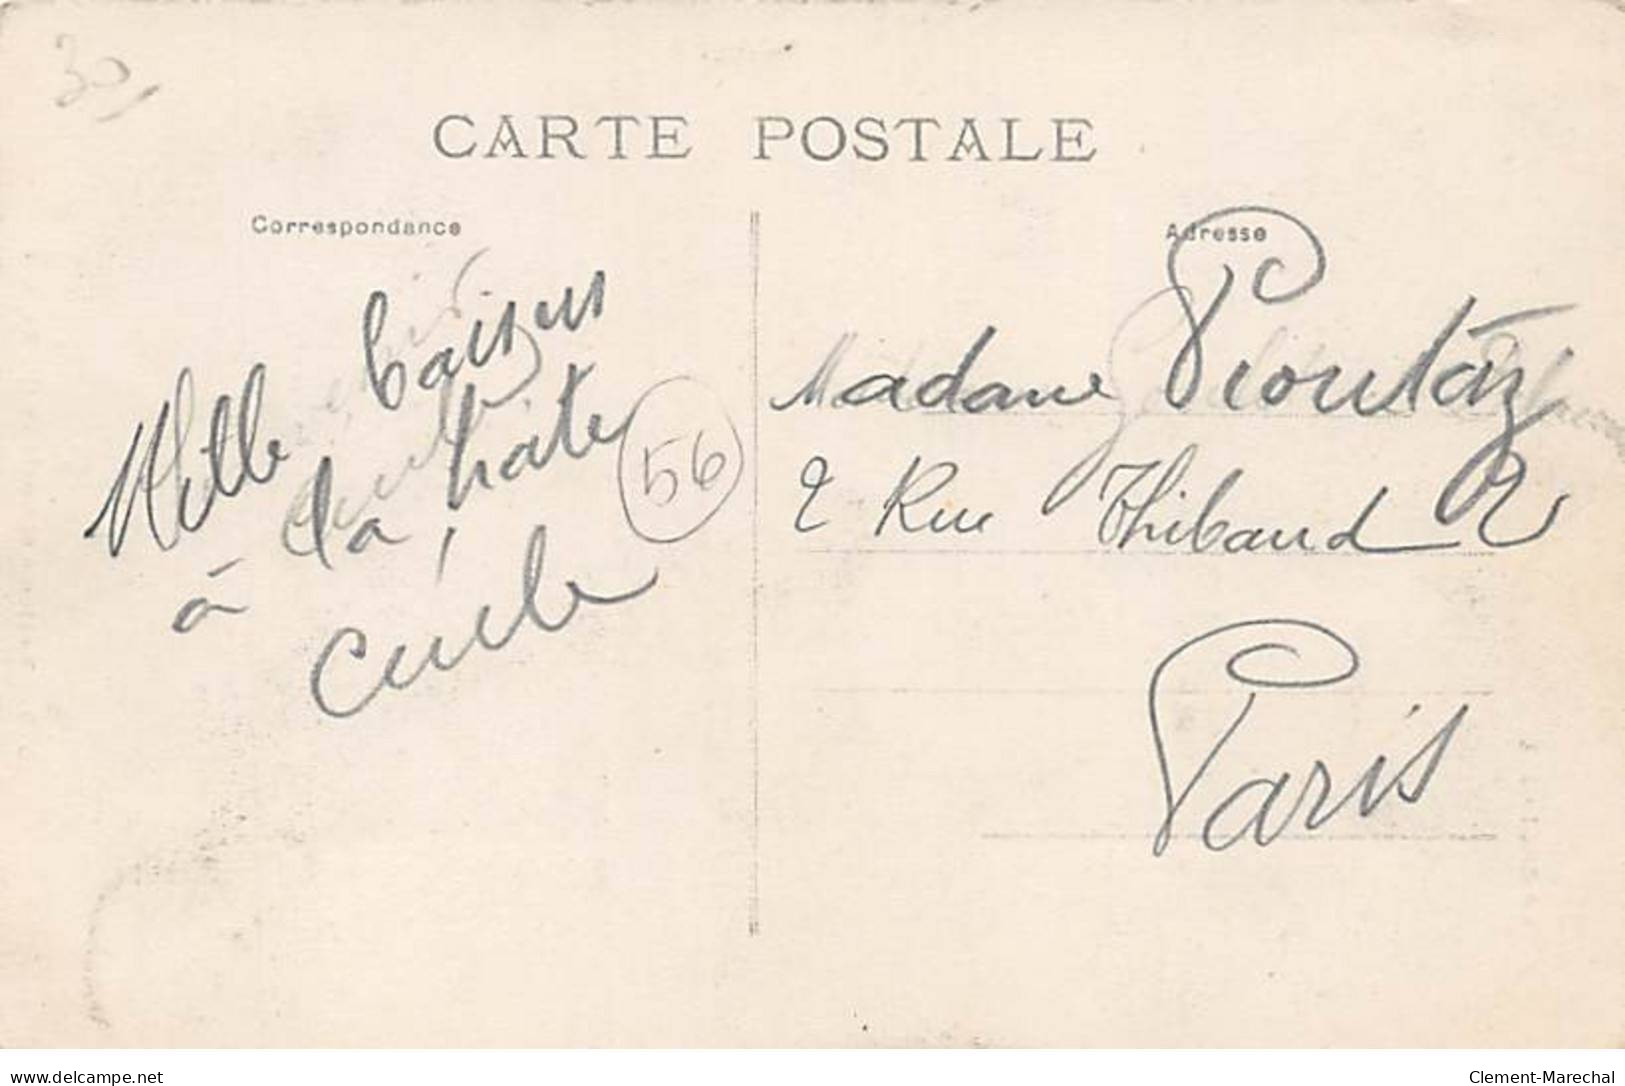 30
CARTE POSTALE
Correspondance
Mille baisers
à la hâte
Cécile
56
Adresse
Madame Pioutaz
2 Rue Thibaud
Paris
delcampe.net
Clement-Marechal